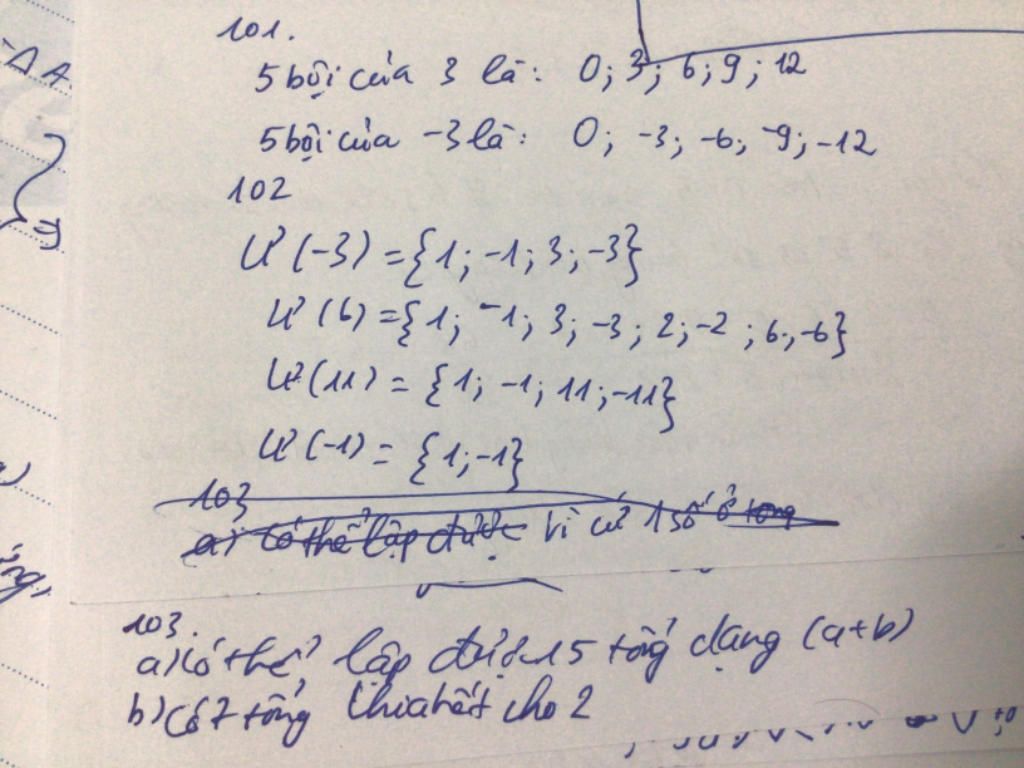 101.
5 bội của 3 là: 0; 3; 6; 9; 12
5 bội của -3 là: 0; -3; -6; -9; -12
102
Ư(-3) = {1; -1; 3; -3}
Ư(6) = {1; -1; 3; -3; 2; -2; 6; -6}
Ư(11) = {1; -1; 11; -11}
Ư(-1) = {1; -1}
103
a) Có thể lập được vì cứ 1 số ở tổng
103.
a) Có thể lập được 15 tổng dạng (a+b)
b) Có 7 tổng chia hết cho 2